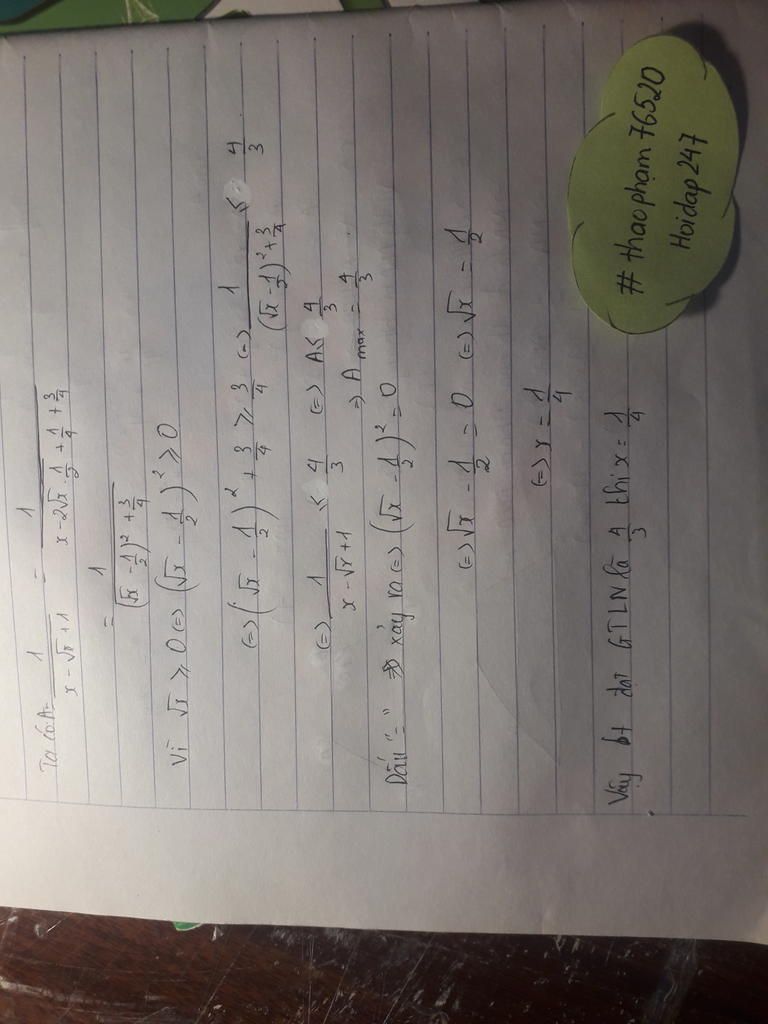 Ta có: A = 1/(x - √x + 1) = 1/(x - 2√x · 1/2 + 1/4 + 3/4)
= 1/((√x - 1/2)² + 3/4)
Vì √x ≥ 0 (=) (√x - 1/2)² ≥ 0
(=) (√x - 1/2)² + 3/4 ≥ 3/4 (=) 1/((√x - 1/2)² + 3/4) ≤ 4/3
(=) 1/(x - √x + 1) ≤ 4/3 (=) A ≤ 4/3
=) A max = 4/3
Dấu "=" xảy ra (=) (√x - 1/2)² = 0
(=) √x - 1/2 = 0 (=) √x = 1/2
(=) x = 1/4
Vậy bt đạt GTLN là 4/3 thì x = 1/4
# thaophạm 76520
Hoidap 247